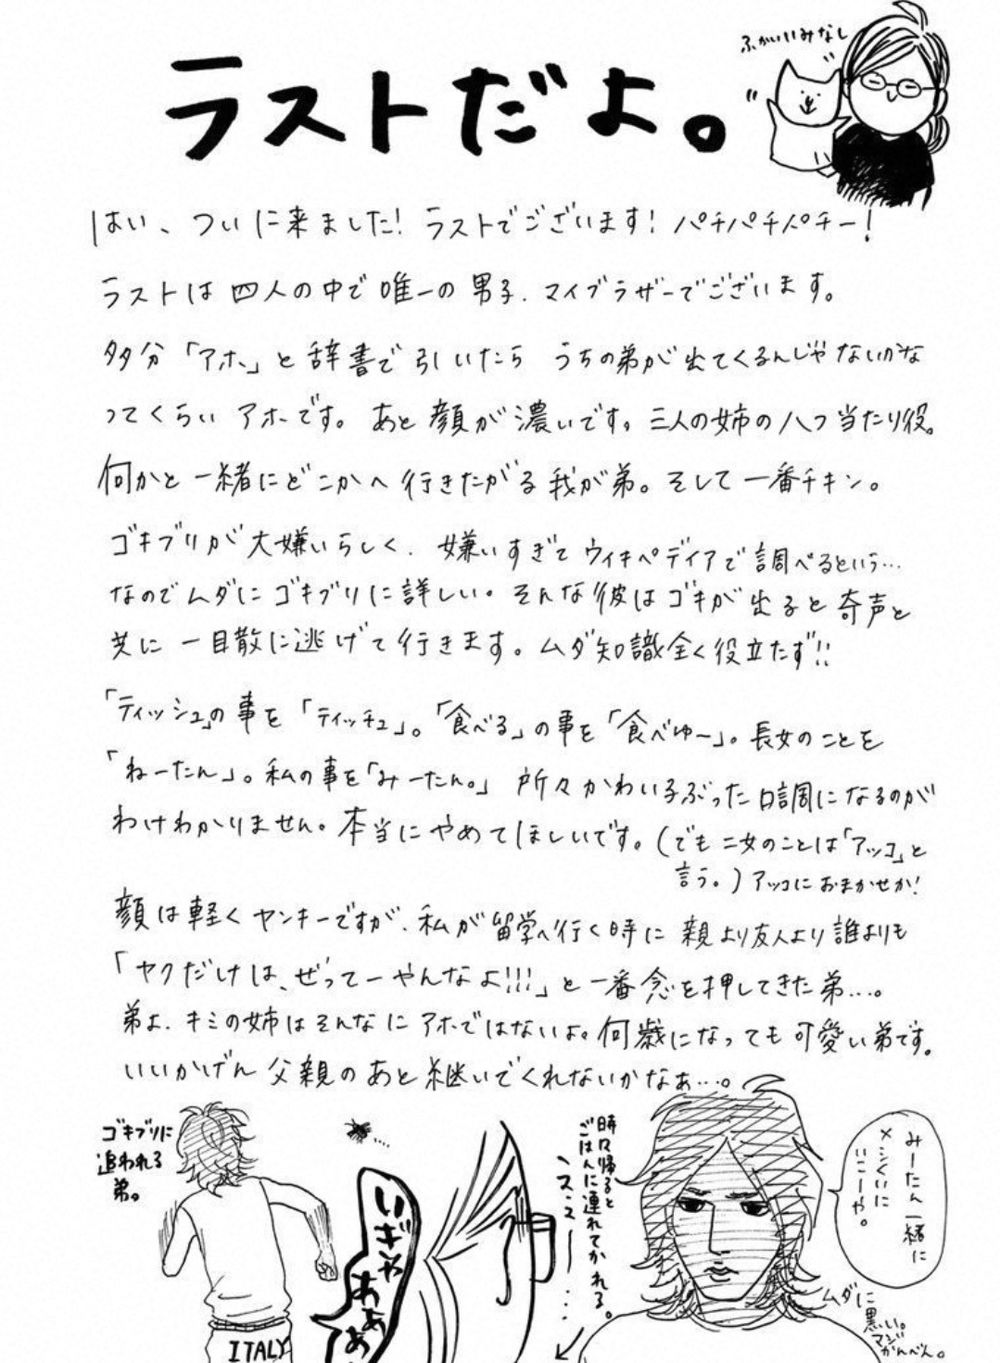 ラストだよ。
ふかいいみなし
はい、ついに来ました！ラストでございます！パチパチパチー！
ラストは四人の中で唯一の男子、マイブラザーでございます。
多分「アホ」と辞書で引いたら うちの弟が出てくるんじゃないかな
ってくらい アホです。あと顔が濃いです。三人の姉の八つ当たり役。
何かと一緒にどこかへ行きたがる我が弟。そして一番チキン。
ゴキブリが大嫌いらしく、嫌いすぎてウィキペディアで調べるという…
なのでムダにゴキブリに詳しい。そんな彼はゴキが出ると奇声と
共に一目散に逃げて行きます。ムダ知識全く役立たず!!
「ティッシュ」の事を「ティッチュ」。「食べる」の事を「食べゆー」。長女のことを
「ねーたん」。私の事を「みーたん。」所々かわい子ぶった口調になるのが
わけわかりません。本当にやめてほしいです。(でも二女のことは「アッコ」と
言う。)アッコにおまかせか！
顔は軽くヤンキーですが、私が留学へ行く時に親より友人より誰よりも
「ヤクだけは、ぜってーやんなよ!!!」と一番念を押してきた弟…。
弟よ、キミの姉はそんなにアホではないよ。何歳になっても可愛い弟です。
いいかげん父親のあと継いでくれないかなぁ…。
ゴキブリに
追われる
弟。
いぎゃ
あぁぁ
ITALY
時々帰ると
ごはんに連れてかれる。
ヘスユー…
みーたん一緒に
メシくいに
いこーや。
ムダに
黒い。
マジ
かんべん。